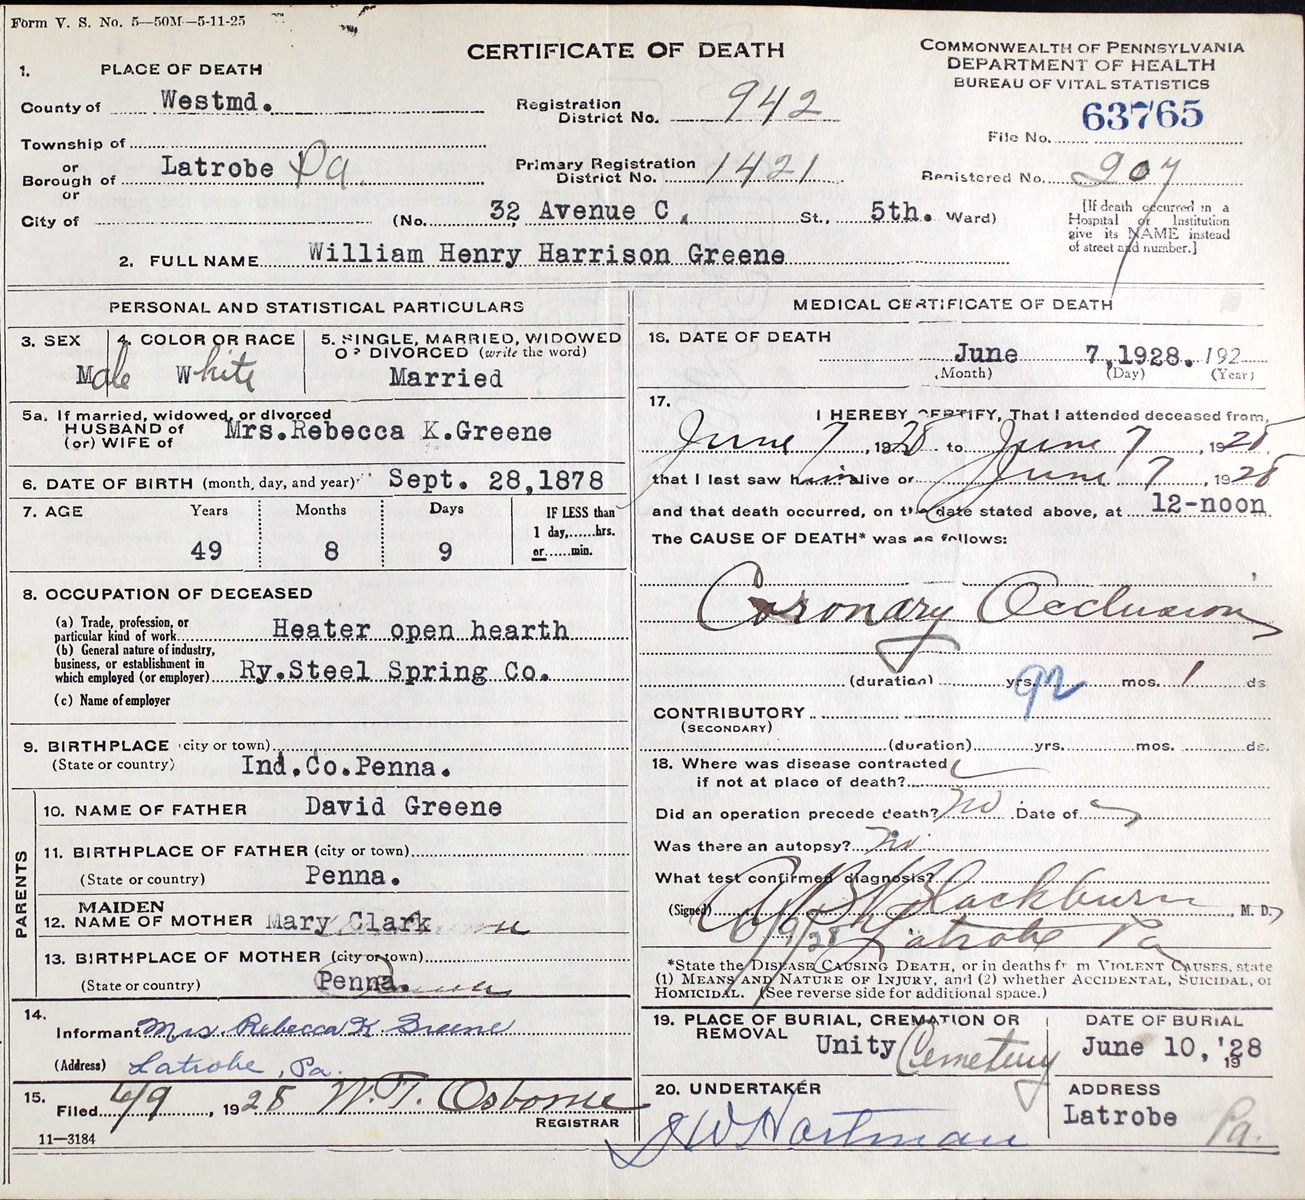 Form V. S. No. 5—50M—5-11-25
CERTIFICATE OF DEATH
COMMONWEALTH OF PENNSYLVANIA
DEPARTMENT OF HEALTH
BUREAU OF VITAL STATISTICS
1. PLACE OF DEATH
County of Westmd.
Registration District No. 942
File No. 63765
Township of
or
Borough of Latrobe Pa.
or
Primary Registration District No. 1421
Registered No. 907
City of (No. 32 Avenue C, St., 5th. Ward)
[If death occurred in a
Hospital or Institution
give its NAME instead
of street and number.]
2. FULL NAME William Henry Harrison Greene
PERSONAL AND STATISTICAL PARTICULARS
3. SEX
Male
4. COLOR OR RACE
White
5. SINGLE, MARRIED, WIDOWED
OR DIVORCED (write the word)
Married
5a. If married, widowed, or divorced
HUSBAND of
(or) WIFE of
Mrs.Rebecca K.Greene
6. DATE OF BIRTH (month, day, and year) Sept. 28,1878
7. AGE Years Months Days
49 8 9
IF LESS than
1 day,......hrs.
or......min.
8. OCCUPATION OF DECEASED
(a) Trade, profession, or
particular kind of work Heater open hearth
(b) General nature of industry,
business, or establishment in
which employed (or employer) Ry.Steel Spring Co.
(c) Name of employer
9. BIRTHPLACE (city or town)
(State or country) Ind.Co.Penna.
PARENTS
10. NAME OF FATHER David Greene
11. BIRTHPLACE OF FATHER (city or town)
(State or country) Penna.
12. MAIDEN NAME OF MOTHER Mary Clark
13. BIRTHPLACE OF MOTHER (city or town)
(State or country) Penna.
14.
Informant Mrs Rebecca K Greene
(Address) Latrobe, Pa.
15.
Filed 6/9, 1928 W.T. Osborne
REGISTRAR
11—3184
MEDICAL CERTIFICATE OF DEATH
16. DATE OF DEATH
June 7,1928. 192
(Month) (Day) (Year)
17.
I HEREBY CERTIFY, That I attended deceased from,
June 7, 1928 to June 7, 1928
that I last saw him alive on June 7, 1928
and that death occurred, on the date stated above, at 12-noon
The CAUSE OF DEATH* was as follows:
Coronary Occlusion
92
(duration) yrs. mos. 1 ds
CONTRIBUTORY
(SECONDARY)
(duration) yrs. mos. ds.
18. Where was disease contracted
if not at place of death?
Did an operation precede death? No Date of
Was there an autopsy? No
What test confirmed diagnosis?
(Signed) Blackburn, M. D.
6/9/28 Latrobe Pa
*State the DISEASE CAUSING DEATH, or in deaths from VIOLENT CAUSES, state
(1) MEANS AND NATURE OF INJURY, and (2) whether ACCIDENTAL, SUICIDAL, or
HOMICIDAL. (See reverse side for additional space.)
19. PLACE OF BURIAL, CREMATION OR
REMOVAL
Unity Cemetery
DATE OF BURIAL
June 10,'28
19
20. UNDERTAKER
J W Hartman
ADDRESS
Latrobe Pa.